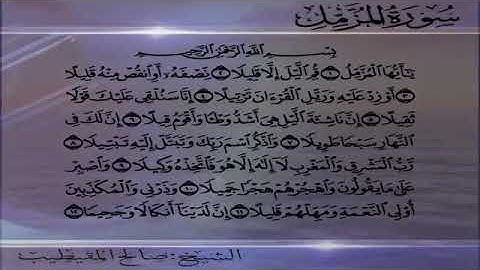 سورة المزمل
بسم الله الرحمن الرحيم
يَٰٓأَيُّهَا ٱلْمُزَّمِّلُ ١ قُمِ ٱلَّيْلَ إِلَّا قَلِيلًا ٢ نِّصْفَهُۥٓ أَوِ ٱنقُصْ مِنْهُ قَلِيلًا
٣ أَوْ زِدْ عَلَيْهِ وَرَتِّلِ ٱلْقُرْءَانَ تَرْتِيلًا ٤ إِنَّا سَنُلْقِى عَلَيْكَ قَوْلًا
ثَقِيلًا ٥ إِنَّ نَاشِئَةَ ٱلَّيْلِ هِىَ أَشَدُّ وَطْـًٔا وَأَقْوَمُ قِيلًا ٦ إِنَّ لَكَ فِى
ٱلنَّهَارِ سَبْحًا طَوِيلًا ٧ وَٱذْكُرِ ٱسْمَ رَبِّكَ وَتَبَتَّلْ إِلَيْهِ تَبْتِيلًا ٨
رَّبُّ ٱلْمَشْرِقِ وَٱلْمَغْرِبِ لَآ إِلَٰهَ إِلَّا هُوَ فَٱتَّخِذْهُ وَكِيلًا ٩ وَٱصْبِرْ
عَلَىٰ مَا يَقُولُونَ وَٱهْجُرْهُمْ هَجْرًا جَمِيلًا ١٠ وَذَرْنِى وَٱلْمُكَذِّبِينَ
أُو۟لِى ٱلنَّعْمَةِ وَمَهِّلْهُمْ قَلِيلًا ١١ إِنَّ لَدَيْنَآ أَنكَالًا وَجَحِيمًا ١٢
الشيخ: صالح المقيطيب